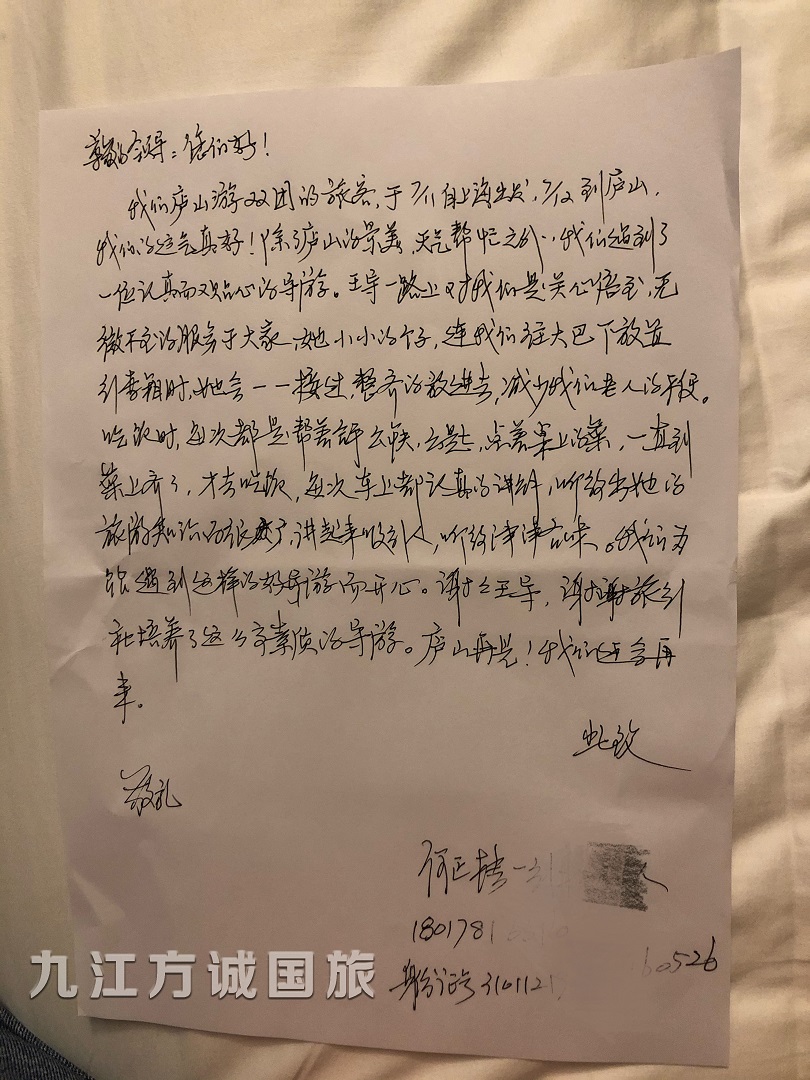 尊敬的领导：您们好！
我们庐山游双团的旅客，于7/11自上海出发，7/12到庐山，
我们的运气真好！除了庐山的景美，天气帮忙之外，我们遇到了
一位认真而又贴心的导游。王导一路上对我们是关心倍至，无
微不至的服务于大家，她小小的个子，连我们往大巴下放置
行李箱时，她会一一接过，整齐的放进去，减少我们老人的
吃饭时，每次都是帮着，点着桌上的菜，一直到
菜上齐了，才去吃饭，每次车上都认真的讲解，听得出她的
旅游知识面很广，讲起来吸引人，听得津津有味。我们为
能遇到这样的好导游而开心。谢谢王导，谢谢旅行
社培养了这么高素质的导游。庐山再见！我们还会再
来。
此致
敬礼
何正
1801781
身份证号3101121 60526
九江方诚国旅